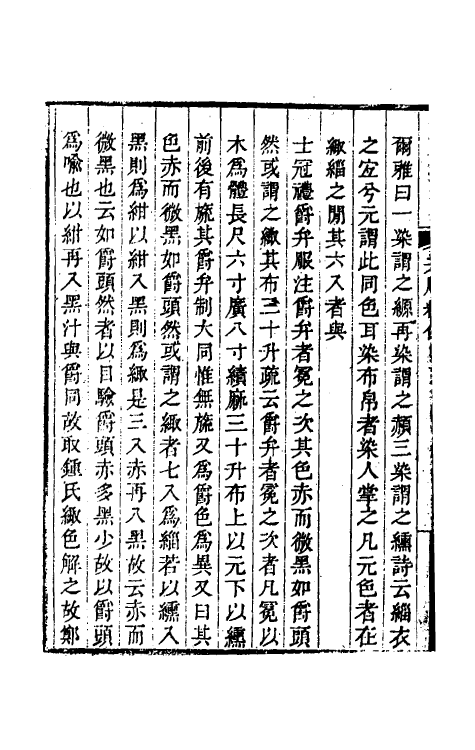 爾雅曰一染謂之縓再染謂之赬三染謂之纁詩云緇衣
之宜兮元謂此同色耳染布帛者染人掌之凡元色者在
緅緇之閒其六入者與
士冠禮爵弁服注爵弁者冕之次其色赤而微黑如爵頭
然或謂之緅其布三十升疏云爵弁者冕之次者凡冕以
木爲體長尺六寸廣八寸績麻三十升布上以元下以纁
前後有旒其爵弁制大同惟無旒又爲爵色爲異又曰其
色赤而微黑如爵頭然或謂之緅者七入爲緇若以纁入
黑則爲紺以紺入黑則爲緅是三入赤再入黑故云赤而
微黑也云如爵頭然者以目驗爵頭赤多黑少故以爵頭
爲喩也以紺再入黑汁與爵同故取鍾氏緅色解之故鄭